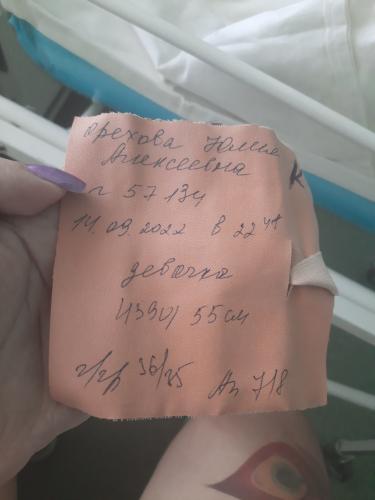 Орехова Юлия
Алексеевна
г 57134
14.09.2022 в 22 48
девочка
4390/ 55 см
г/гр 36/35 Ап 7/8
К